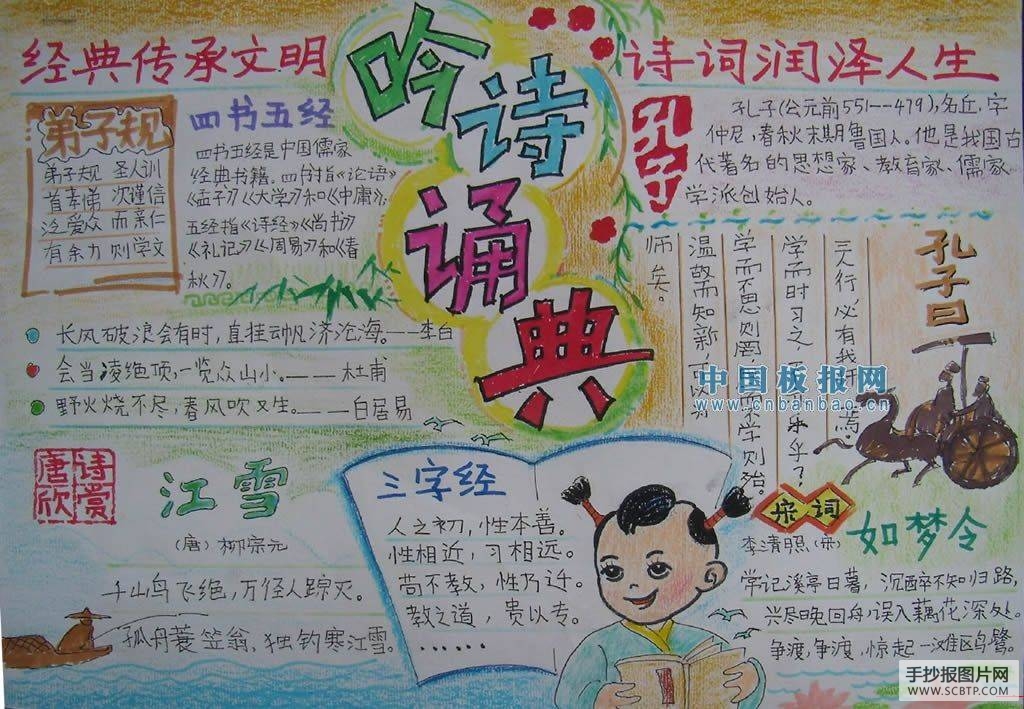 经典传承文明
吟诗诵典
诗词润泽人生
弟子规
弟子规 圣人训
首孝悌 次谨信
泛爱众 而亲仁
有余力 则学文
四书五经
四书五经是中国儒家
经典书籍。四书指《论语》
《孟子》《大学》和《中庸》;
五经指《诗经》《尚书》
《礼记》《周易》和《春
秋》。
孔子
孔子(公元前551--479),名丘,字
仲尼,春秋末期鲁国人。他是我国古
代著名的思想家、教育家、儒家
学派创始人。
孔子曰
三人行,必有我师焉。
学而时习之
乐乎?
学而不思则罔
学则殆。
温故而知新,可以
师矣。
长风破浪会有时,直挂云帆济沧海。——李白
会当凌绝顶,一览众山小。——杜甫
野火烧不尽,春风吹又生。——白居易
中国板报网
www.cnbanbao.cn
唐诗
欣赏
江雪
(唐)柳宗元
千山鸟飞绝,万径人踪灭。
孤舟蓑笠翁,独钓寒江雪。
三字经
人之初,性本善。
性相近,习相远。
苟不教,性乃迁。
教之道,贵以专。
······
宋词
李清照(宋)
如梦令
常记溪亭日暮,沉醉不知归路,
兴尽晚回舟,误入藕花深处。
争渡,争渡,惊起一滩鸥鹭。
手抄报图片网
WWW.SCBTP.COM